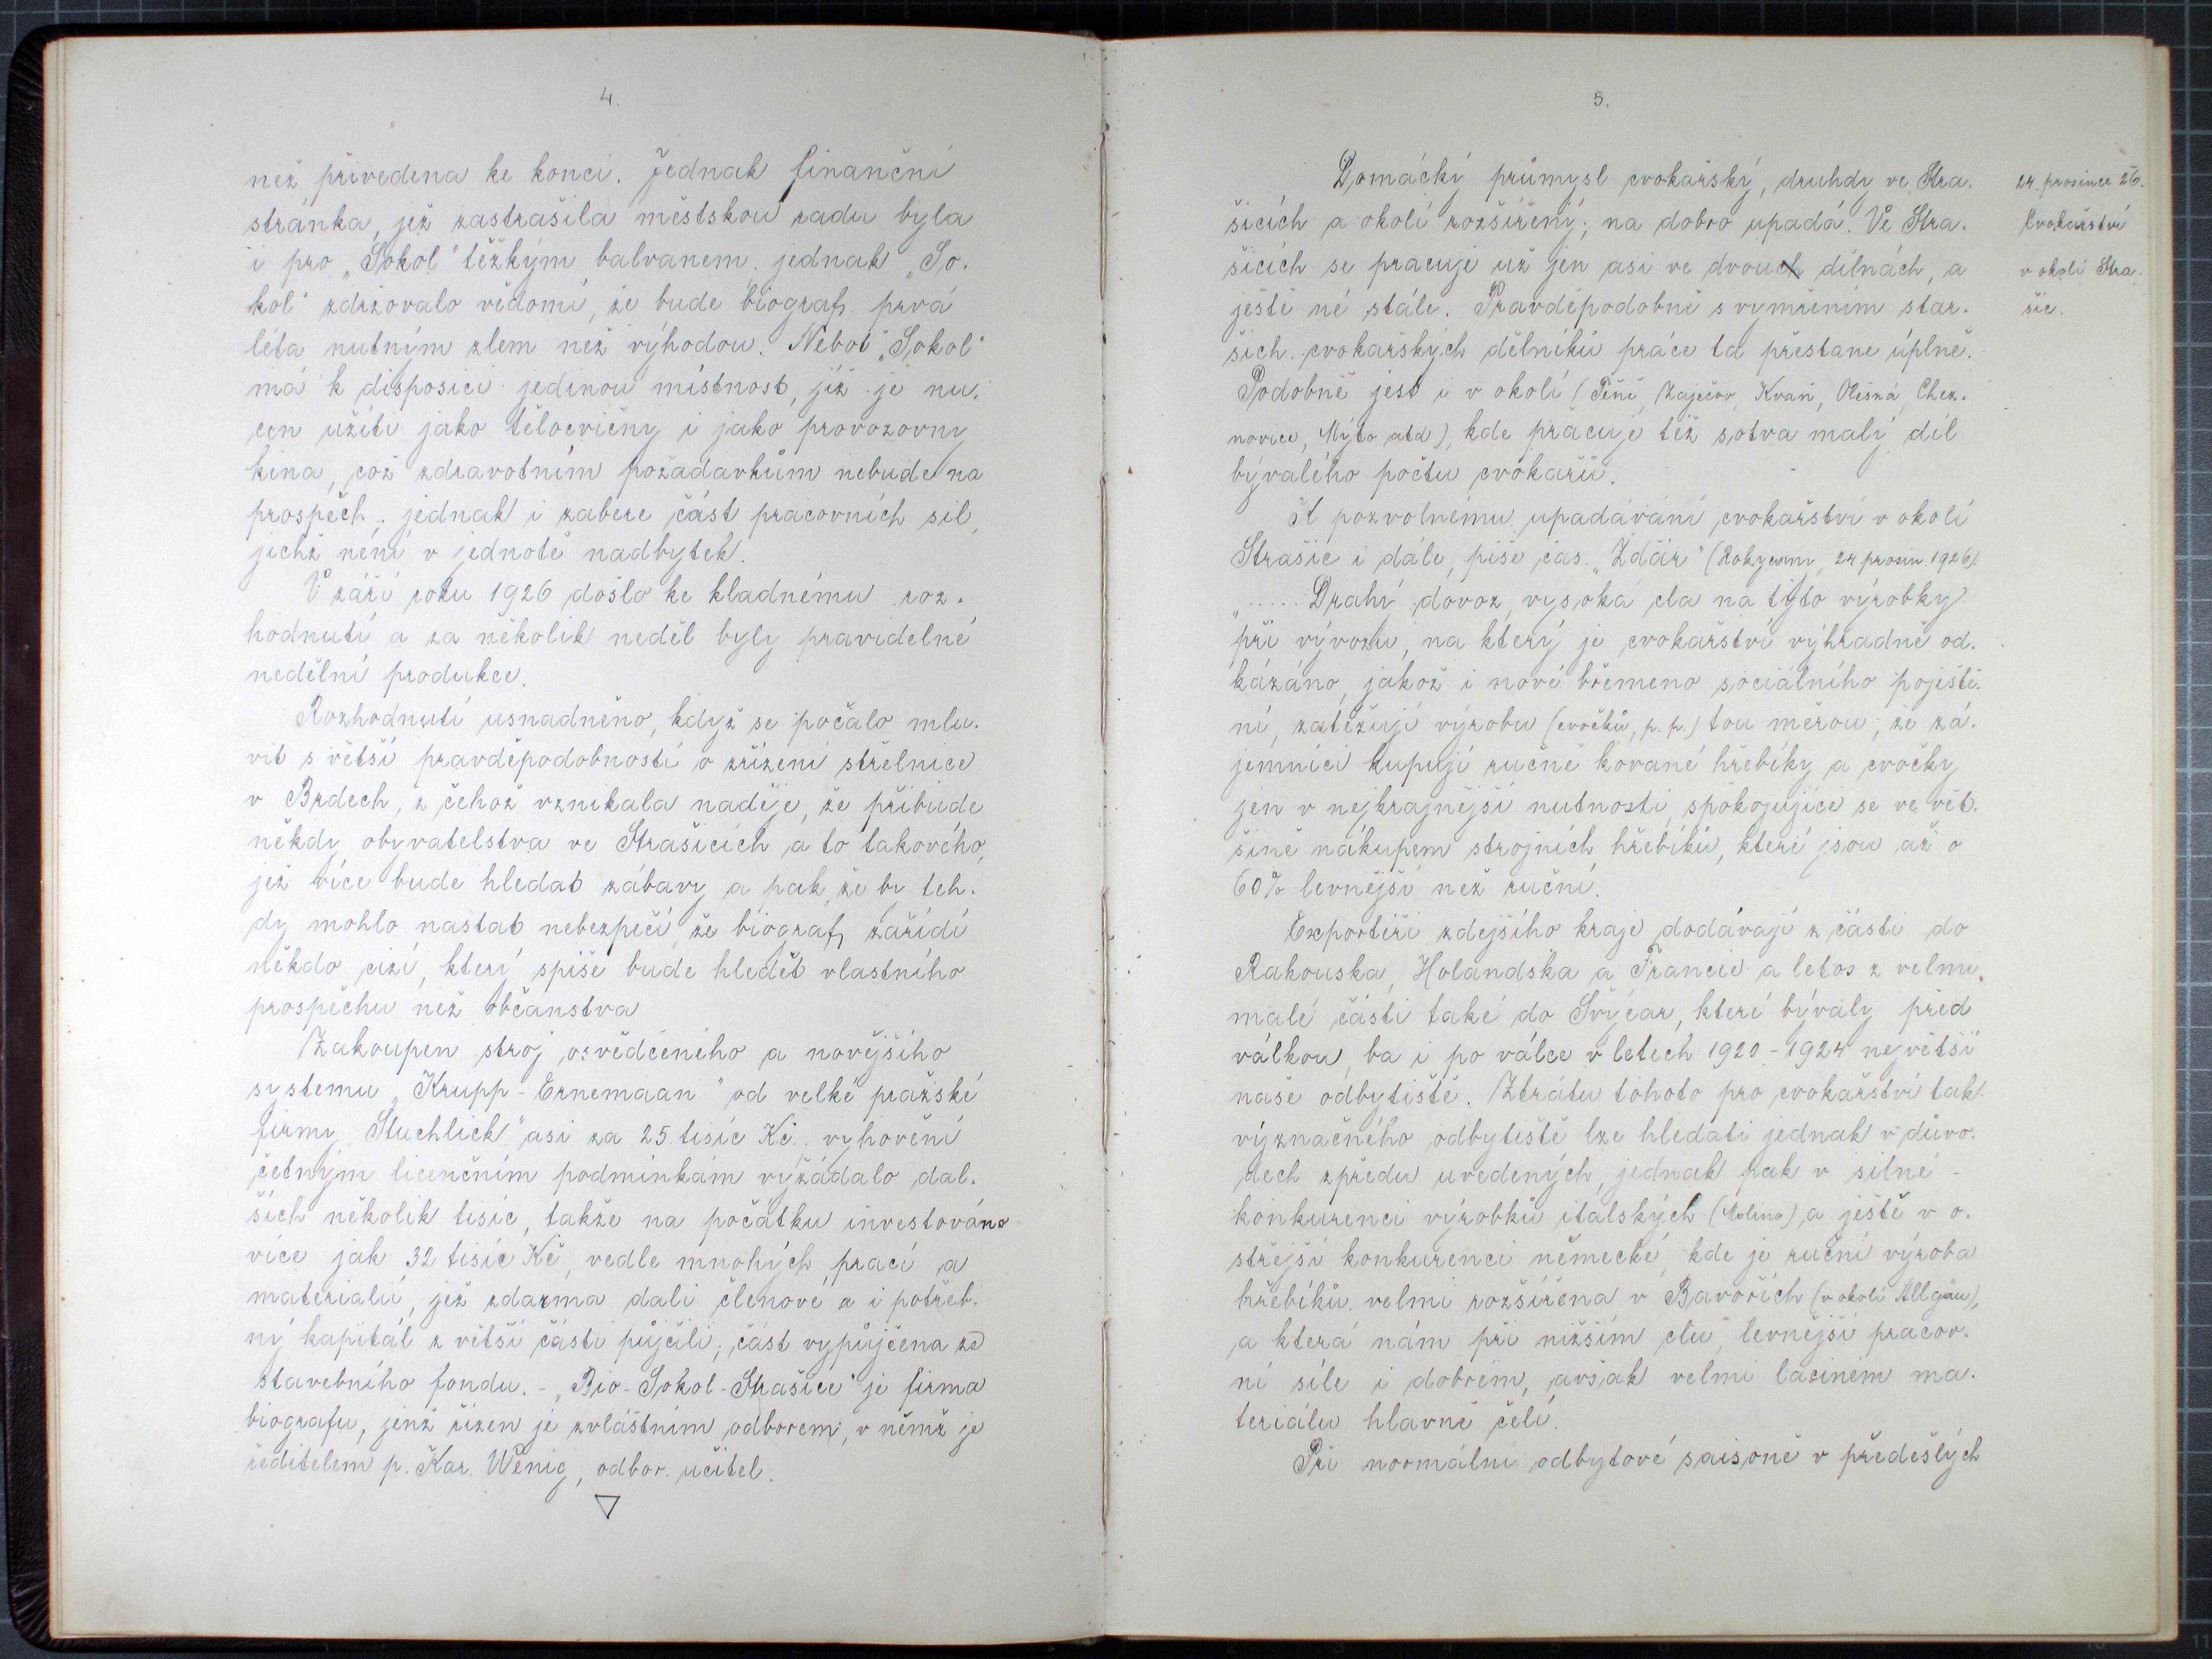 4.
než přivedena ke konci. Jednak finanční
stránka, jež zastrašila městskou radu byla
i pro „Sokol“ těžkým balvanem, jednak „So-
kol“ zdržovalo vědomí, že bude biograf prvá
léta nutným zlem než výhodou. Neboť „Sokol“
má k disposici jedinou místnost, již je nu-
cen užíti jako tělocvičny i jako provozovny
kina, což zdravotním požadavkům nebude na
prospěch; jednak i zabere část pracovních sil,
jichž není v jednotě nadbytek.
V září roku 1926 došlo ke kladnému roz-
hodnutí a za několik neděl byly pravidelné
nedělní produkce.
Rozhodnutí usnadněno, když se počalo mlu-
vit s větší pravděpodobností o zřízení střelnice
v Brdech, z čehož vznikala naděje, že přibude
někdy obyvatelstva ve Strašicích a to takového,
jež více bude hledat zábavy a pak, že by teh-
dy mohlo nastat nebezpečí, že biograf zařídí
někdo cizí, který spíše bude hledět vlastního
prospěchu než občanstva
Zakoupen stroj osvědčeného a novějšího
systemu „Krupp-Ernemaan“ od velké pražské
firmy „Stuchlick“ asi za 25 tisíc Kč. vyhovění
četným licenčním podmínkám vyžádalo dal-
ších několik tisíc, takže na počátku investováno
více jak 32 tisíc Kč, vedle mnohých prací a
materialií, jež zdarma dali členové a i potřeb-
ný kapitál z větší části půjčili; část vypůjčena ze
stavebního fondu. - „Bio-Sokol-Strašice“ je firma
biografu, jenž řízen je zvláštním odborem, v němž je
ředitelem p. Kar. Wenig, odbor. učitel.
5.
Domácký průmysl cvokařský, druhdy ve Stra-
šicích a okolí rozšířený; na dobro upadá. Ve Stra-
šicích se pracuje už jen asi ve dvouch dílnách, a
ještě né stále. Pravděpodobně s vymřením star-
ších cvokařských dělníků práce ta přestane úplně.
Podobně jest i v okolí (Těně, Zaječov, Kvaň, Olešná, Chez-
novice, Mýto atd), kde pracuje též sotva malý díl
bývalého počtu cvokařů.
K pozvolnému upadávání cvokařství v okolí
Strašic i dále, píše čas. „Žďár“ (Rokycany, 24 prosin 1926):
„..... Drahý dovoz, vysoká cla na tyto výrobky
při vývozu, na který je cvokařství výhradně od-
kázáno, jakož i nové břemeno sociálního pojiště-
ní, zatěžují výrobu (cvočků, p. p.) tou měrou, že zá-
jemníci kupují ručně kované hřebíky a cvočky
jen v nejkrajnější nutnosti, spokojujíce se ve vět-
šině nákupem strojních hřebíků, které jsou až o
60% levnější než ruční.
Exportéři zdejšího kraje dodávají z části do
Rakouska, Holandska a Francie a letos z velmi
malé části také do Švýcar, které bývaly před
válkou, ba i po válce v letech 1920-1924 největší
naše odbytiště. Ztrátu tohoto pro cvokařství tak
význačného odbytiště lze hledati jednak v důvo-
dech zpředu uvedených, jednak pak v silné
konkurenci výrobků italských (Molino), a ještě v o-
střejší konkurenci německé, kde je ruční výroba
hřebíků velmi rozšířena v Bavořích (v okolí Allgäu),
a která nám při nižším clu, levnější pracov-
ní síle i dobrém, avšak velmi laciném ma-
teriálu hlavně čelí.
Při normální odbytové saisoně v předešlých
24. prosince 26.
Cvokařství
v okolí Stra-
šic.